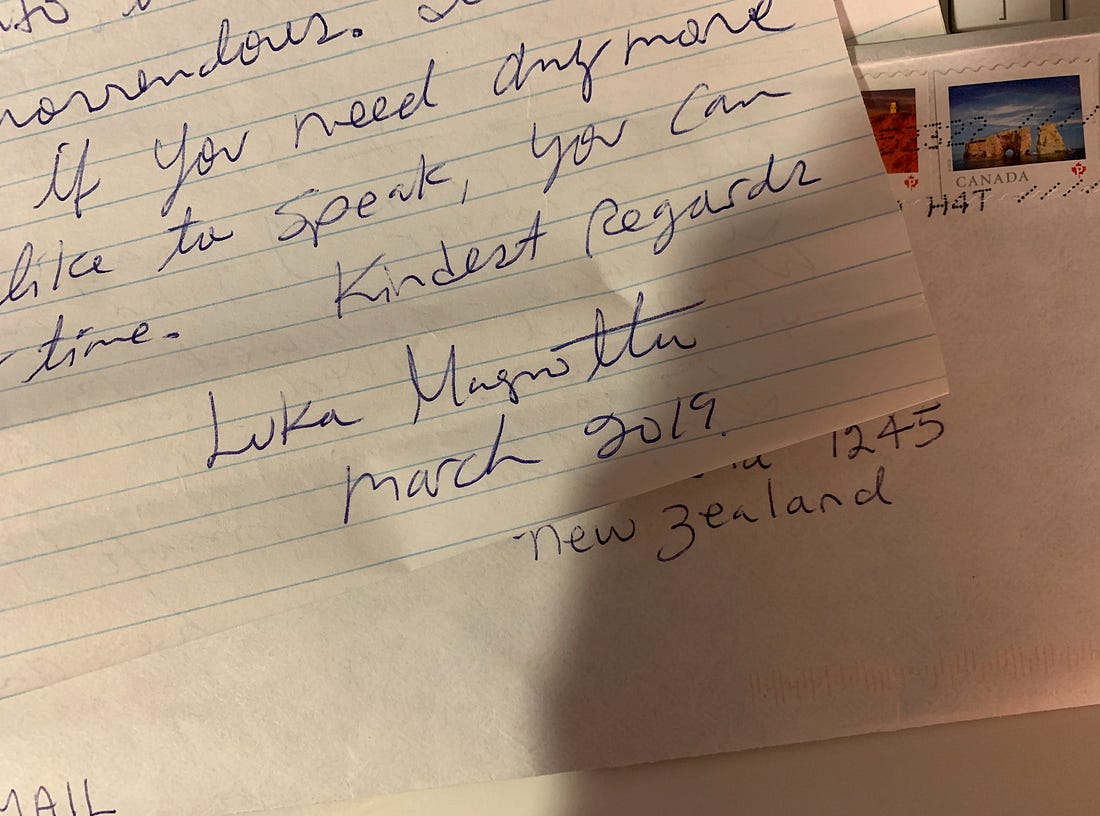 horrendous.
if you need anymore
like to speak, you can
time. Kindest Regards
Luka Magnotta
march 2019.
CANADA
H4T
1245
new Zealand
MAIL